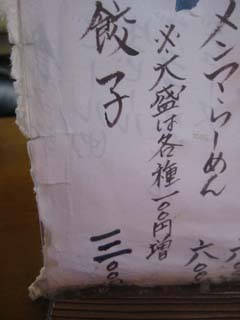 メンマらーめん
六〇〇
※大盛は各種一〇〇円増
餃子
三〇〇